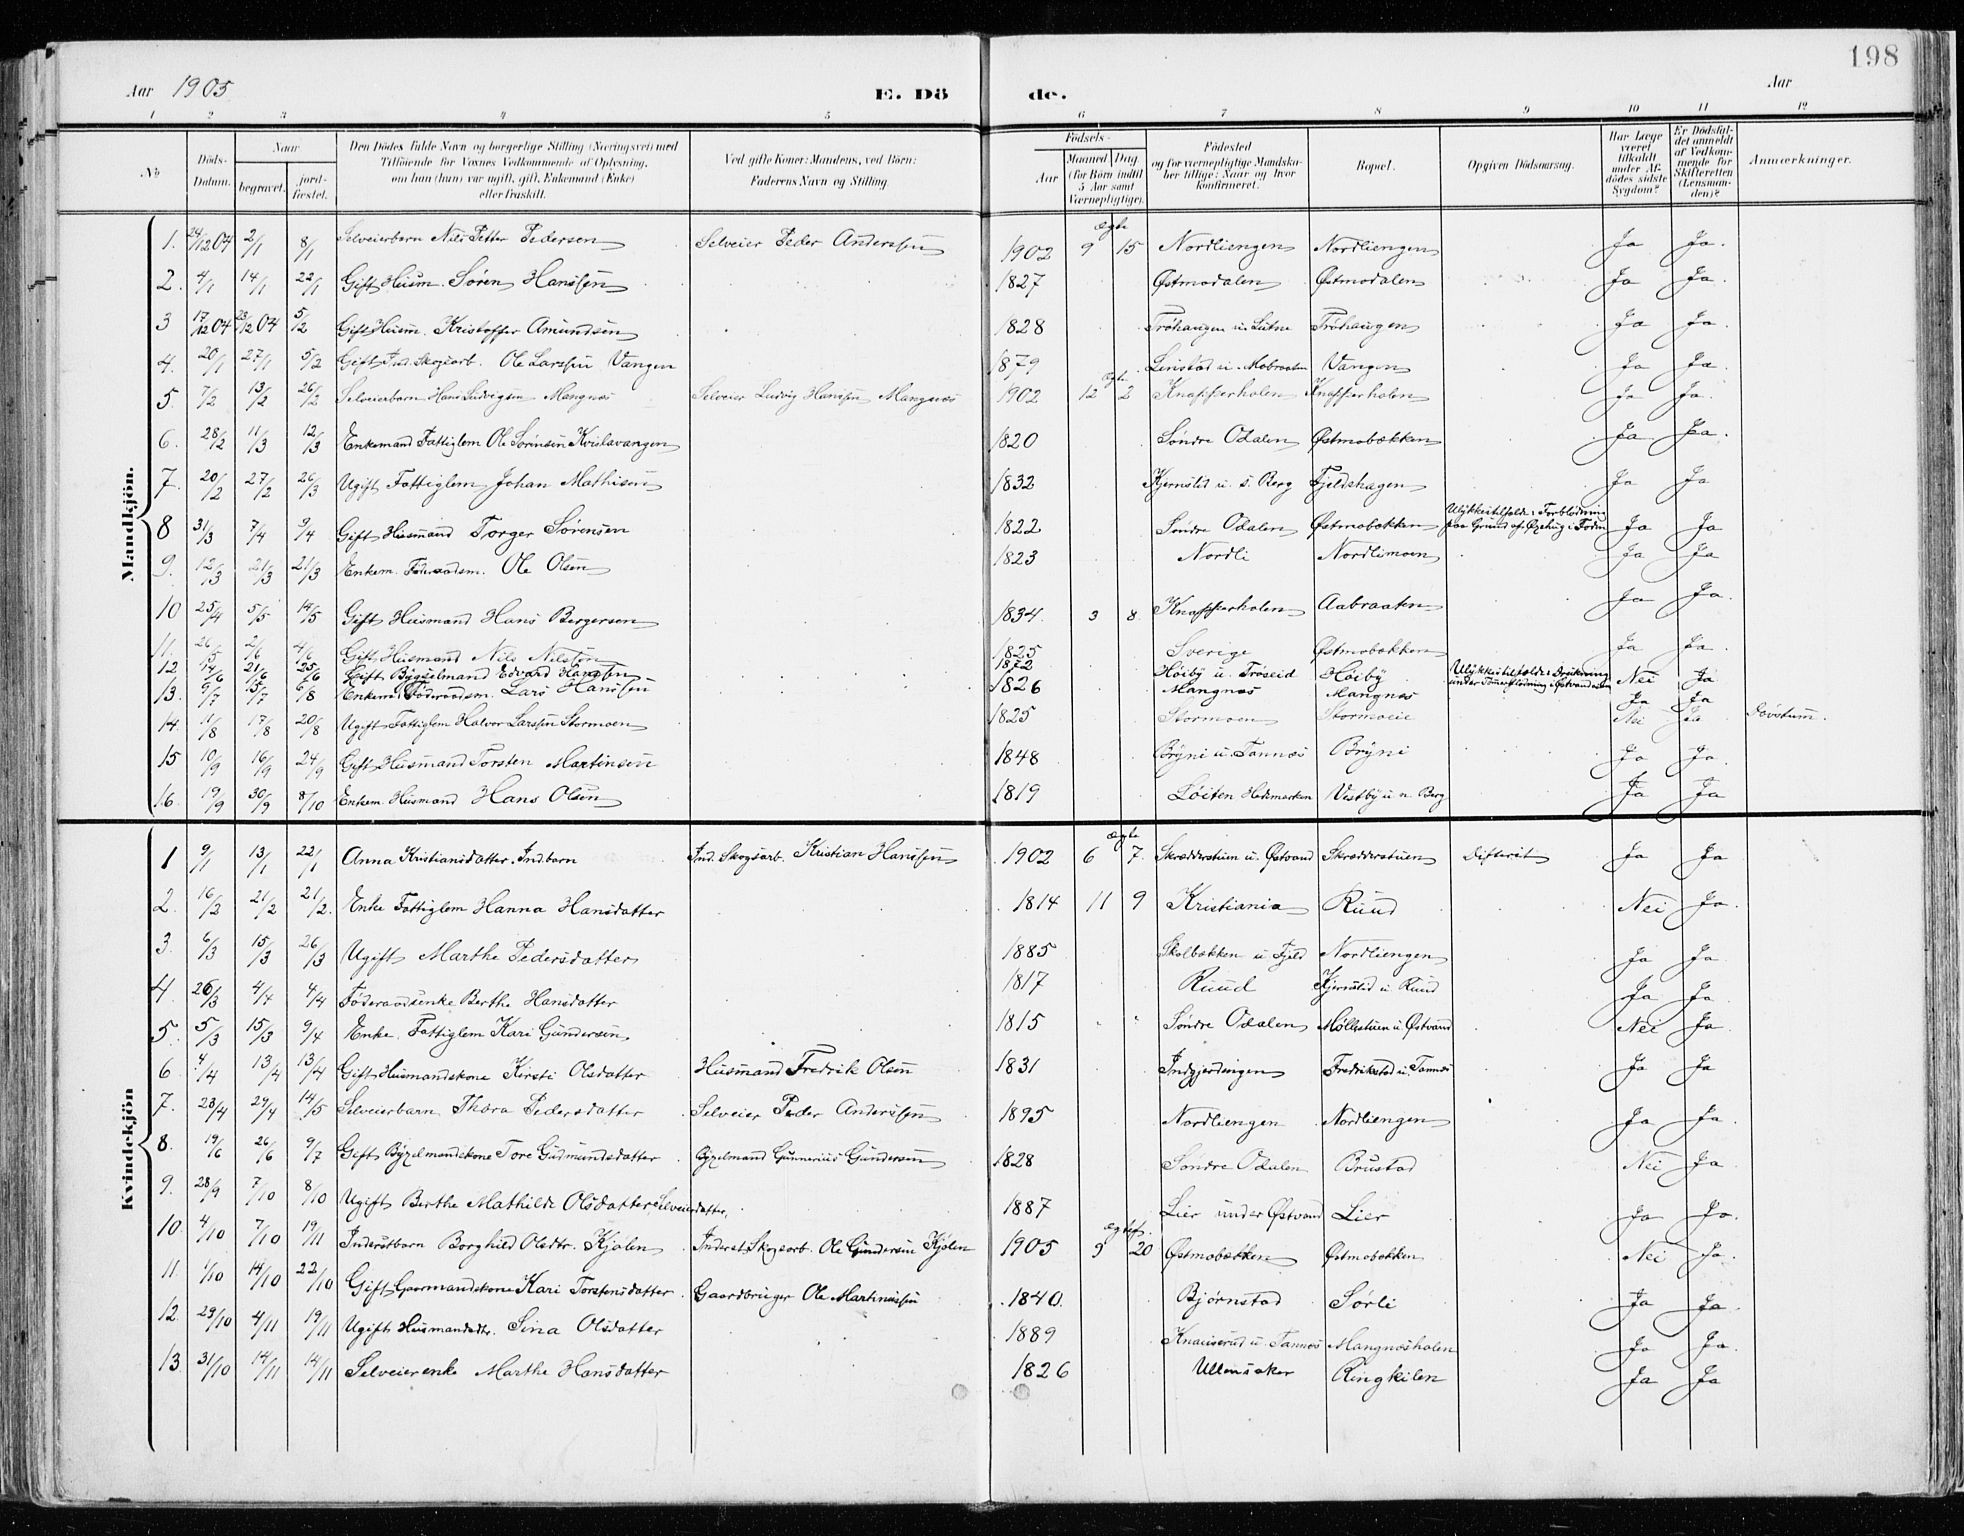 198
Aar 1905 E. Dö de. Aar
1 2 3 4 5 6 7 8 9 10 11 12
No
Döds-Datum.
Naar
begravet.
jord-fæstet.
Den Dödes fulde Navn og borgerlige Stilling (Næringsvei) med Tilföiende for Voxnes Vedkommende af Oplysning, om han (hun) var ugift, gift, Enkemand (Enke) eller fraskilt.
Ved gifte Koner: Mandens, ved Börn: Faderens Navn og Stilling.
Födsels-
Aar
Maaned Dag
(for Börn indtil 5 Aar samt Værnepligtige).
Födested og for værnepligtige Mandska-ber tillige: Naar og hvor konfirmeret.
Bopæl.
Opgiven Dödsaarsag.
Har Læge været tilkaldt under Af-dödes sidste Sygdom?
Er Dödsfal-det anmeldt af Vedkom-mende for Skifteretten (Lensman-den)?
Anmærkninger.
Mandkjön.
1. 24/12 04 2/1 8/1 Selveierbarn Nils Petter Pedersen Selveier Peder Anderssen 1902 ægte 9 15 Nordliengen Nordliengen Ja Ja.
2. 4/1 14/1 22/1 Gift Husm. Sören Hanssen 1827 Østmodalen Østmodalen Ja Ja.
3 17/12 04 23/12 04 5/12 Gift Husm. Kristoffer Amundsen 1828 Tröhaugen u. Lutne Tröhaugen Ja Ja.
4. 20/1 27/1 5/2 Gift Ind. Skogsarb. Ole Larssen Vangen 1879 Linstad u. Mobraaten Vangen Ja Ja
5. 7/2 13/2 26/2 Selveierbarn Hans Ludvigsen Mangnæs Selveier Ludvig Hanssen Mangnæs 1902 ægte 12 2 Knapperholen Knapperholen Ja Ja.
6. 28/2 11/3 12/3 Enkemand Fattiglem Ole Sörensen Kvislavangen 1820 Söndre Odalen Østmobækken Ja Ja.
7. 20/2 27/2 26/3 Ugift Fattiglem Johan Mathisen 1832 Kjernslid u. s. Berg Fjeldshagen Ja Ja
8 31/3 7/4 9/4 Gift Husmand Torger Sörensen 1822 Söndre Odalen Østmobækken Ulykkestilfælde: Forblödning paa Grund af Øxehug i Foden Ja Ja
9. 12/3 21/3 21/3 Enkem. Föderaadsm. Ole Olsen 1823 Nordli Nordlimoen Ja Ja
10 25/4 5/5 14/5 Gift Husmand Hans Bergersen 1834. 3 8. Knapperholen Aabraaten Ja Ja.
11. 26/5 2/6 4/6 Gift Husmand Nils Nilsson 1825 Sverige Østmobækken Ja Ja.
12 14/6 21/6 25/6 Gift Bygselmand Edvard Hanssen 1872 Höiby u. Tröseid Höiby Ulykkestilfælde: Drukning under Tömmerflödning i Østvandaaen Nei Ja
13. 9/7 15/7 6/8 Enkem. Föderaadsm. Lars Hanssen 1826 Mangnæs Mangnæs Ja Ja
14. 11/8 17/8 20/8 Ugift Fattiglem Halvor Larssen Stormoen 1825 Stormoen Stormoen Nei Ja Dövstum.
15 10/9 16/9 24/9 Gift Husmand Torsten Martinsen 1848 Bryni u. Tannæs Bryni Ja Ja.
16. 19/9 30/9 8/10 Enkem. Husmand Hans Olsen 1819 Löiten Hedemarken Vestby u n. Berg Ja Ja
Kvindekjön
1 9/1 13/1 22/1 Anna Kristiansdatter. Ind.barn Ind. Skogsarb. Kristian Hanssen 1902 ægte 6 7. Skrædderstuen u. Østvand Skrædderstuen Difterit Ja Ja
2. 16/2 21/2 21/2. Enke Fattiglem Hanna Hansdatter 1814 11 9 Kristiania Ruud Nei Ja.
3. 6/3 15/3 26/3 Ugift Marthe Pedersdatter 1885 Skolbækken u Fjeld Nordliengen Ja Ja
4. 26/3 4/4 4/4 Föderaadsenke Berthe Hansdatter 1817 Ruud Kjernslid u Ruud Ja Ja.
5. 5/3 15/3 9/4 Enke. Fattiglem Kari Gundersen 1815 Söndre Odalen Möllestuen u Østvand Nei Ja.
6. 4/4 13/4 13/4 Gift Husmandskone Kirsti Olsdatter Husmand Fredrik Olsen 1831 Indgjerdingen Fredrikstad u. Tannæs Ja Ja
7. 23/4 29/4 14/5 Selveierbarn Thora Pedersdatter Selveier Peder Anderssen 1895 Nordliengen Nordliengen Ja Ja.
8. 19/6 26/6 9/7 Gift Bygselmandskone Tore Gudmundsdatter Bygselmand Gunnerius Gundersen 1828 Söndre Odalen Brustad Nei Ja
9. 28/9 7/10 8/10 Ugift Berthe Mathilde Olsdatter, Selveierdatter, 1887 Lier under Østvand Lier Ja Ja.
10 4/10 7/10 19/11 Inderstbarn Borghild Olsdtr. Kjölen Inderst Skogsarb. Ole Gundersen Kjölen 1905 ægtef. 9 20 Østmobækken Østmobækken Nei Ja.
11. 1/10 14/10 22/10 Gift Gaarmandskone Kari Torstensdatter Gaardbruger Ole Martinussen 1840. Björnstad Sörli Ja Ja.
12. 29/10 4/11 19/11 Ugift Husmandsdtr. Sina Olsdatter 1889 Knauserud u Tannæs Mangnæsholen Ja Ja.
13 31/10 14/11 14/11 Selveierenke Marthe Hansdatter 1826 Ullensaker Ringkilen Ja Ja